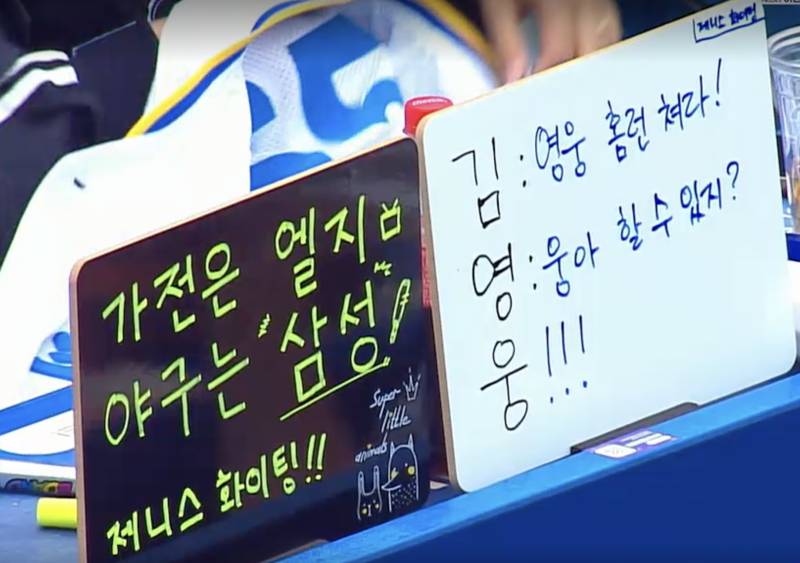 가전은 엘지
야구는 "삼성"
제니스 화이팅!!
Super
little
animals
제니스 화이팅
김 : 영웅 홈런 쳐라!
영 : 웅아 할 수 있지?
웅!!!